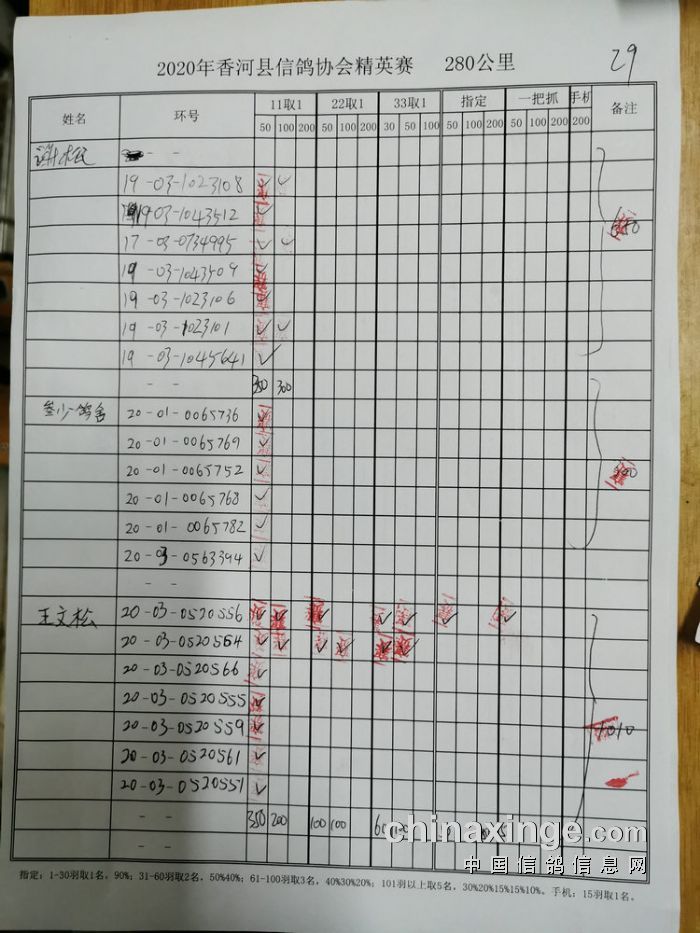 29
2020年香河县信鸽协会精英赛 280公里
姓名 环号 11取1 22取1 33取1 指定 一把抓 手机 备注
50 100 200 50 100 200 30 50 100 50 100 200 50 100 200 200
- -
19-03-1023108 ✓ ✓
19-03-1043512 ✓
17-03-0734995 ✓ ✓
19-03-1043509 ✓
19-03-1023106 ✓
19-03-1023101 ✓ ✓
19-03-1045641 ✓
- - 350 300
鸽舍 20-01-0065736 ✓
20-01-0065769 ✓
20-01-0065752 ✓
20-01-0065768 ✓
20-01-0065782 ✓
20-03-0563394 ✓
- -
王文松 20-03-0520556 ✓ ✓ ✓ ✓ ✓ ✓ ✓
20-03-0520564 ✓ ✓ ✓ ✓ ✓ ✓
20-03-0520566 ✓
20-03-0520555 ✓
20-03-0520559 ✓
20-03-0520561 ✓
20-03-0520551 ✓
1010
- - 350 200 100 100
- -
chinaxinge.com
中国信鸽信息网
指定：1-30羽取1名，90%；31-60羽取2名，50%40%；61-100羽取3名，40%30%20%；101羽以上取5名，30%20%15%15%10%。手机：15羽取1名。